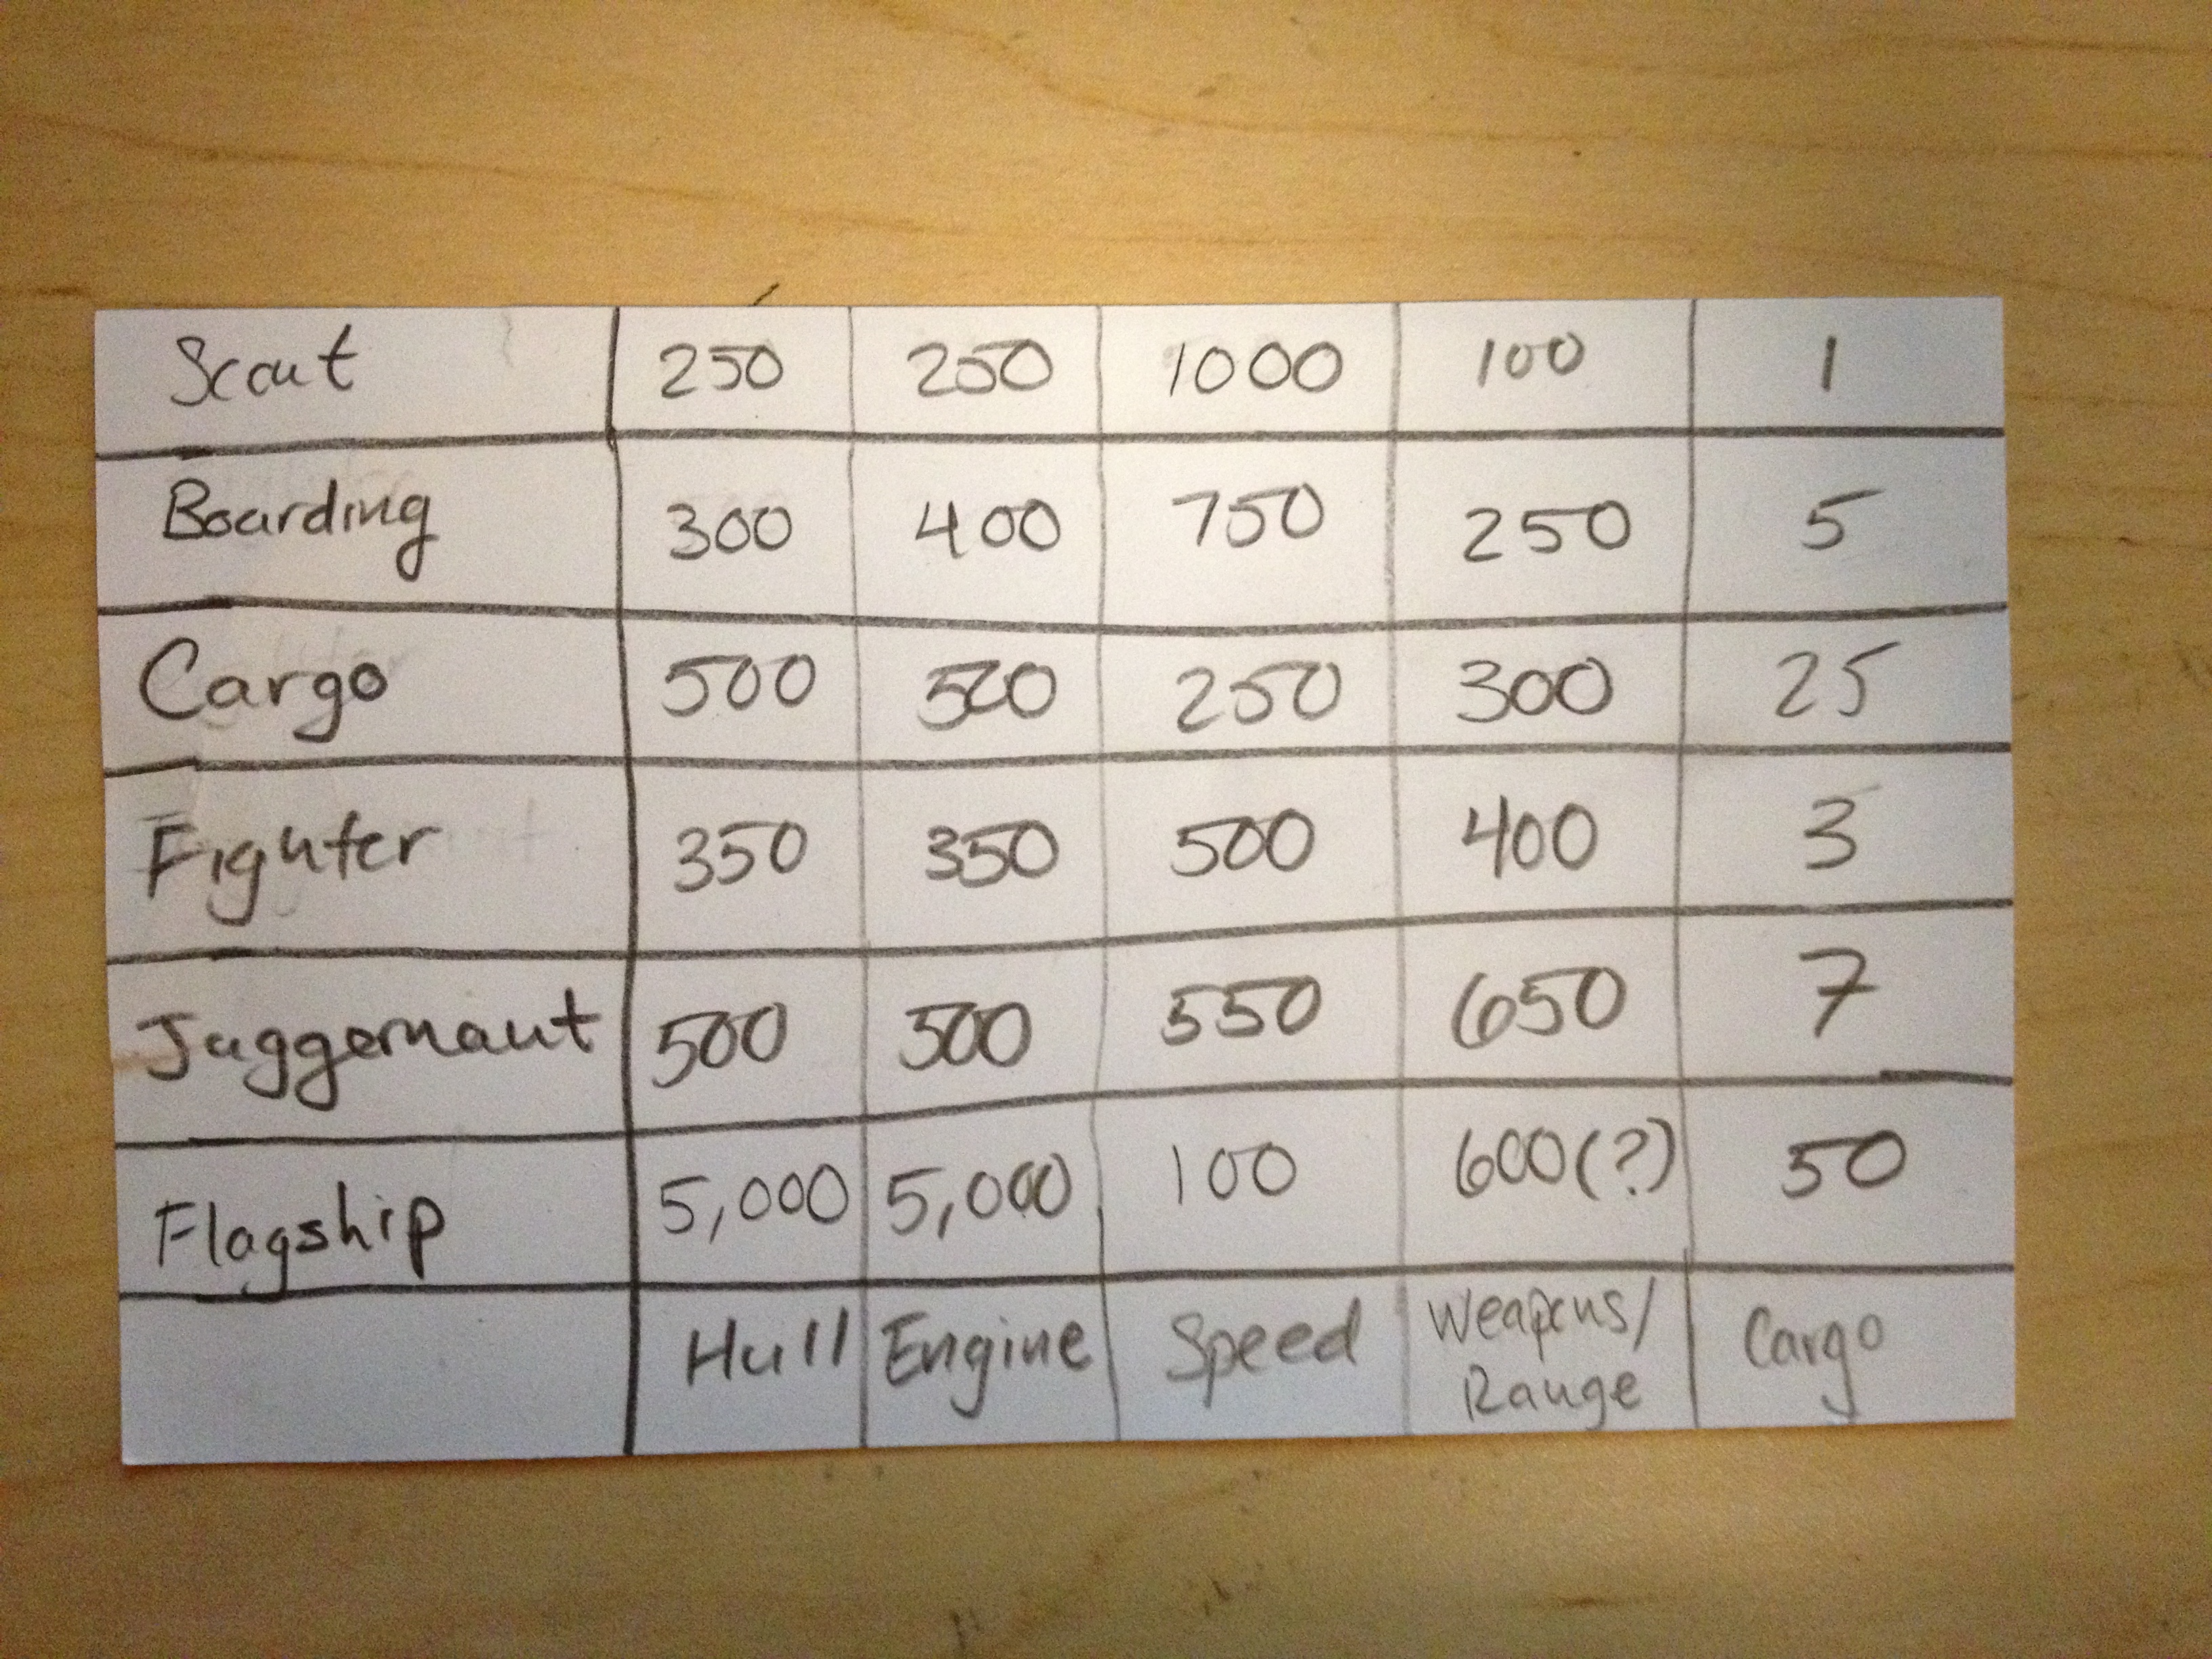 Scout 250 250 1000 100 1
Boarding 300 400 750 250 5
Cargo 500 500 250 300 25
Fighter 350 350 500 400 3
Juggernaut 500 500 550 650 7
Flagship 5,000 5,000 100 600(?) 50
Hull Engine Speed Weapons/ Cargo
Range